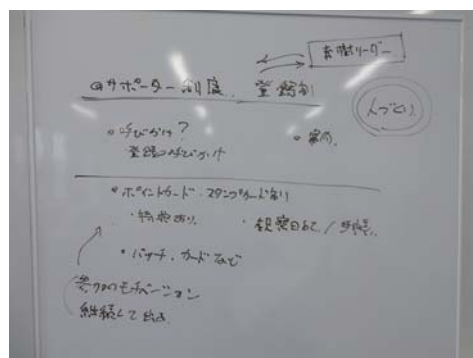 リーダー
◎サポーター制度 登録制
人づくり
・呼びかけ?
登録の呼びかけ
・ポイントカード・スタンプカード制
・特典あり。
・バッチ、カードなど
参加のモチベーション
継続して